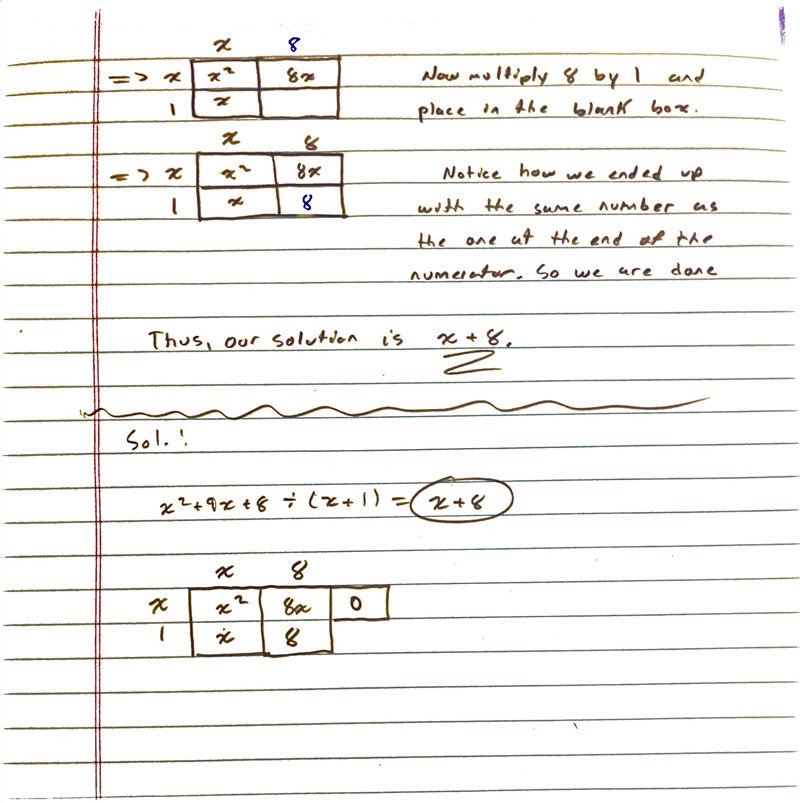 x 8
=> x x² 8x Now multiply 8 by 1 and
1 x place in the blank box.
x 8
=> x x² 8x Notice how we ended up
1 x 8 with the same number as
the one at the end of the
numerator. So we are done
Thus, our solution is x + 8.
Sol.:
x²+9x+8 ÷ (x+1) = x+8
x 8
x x² 8x 0
1 x 8